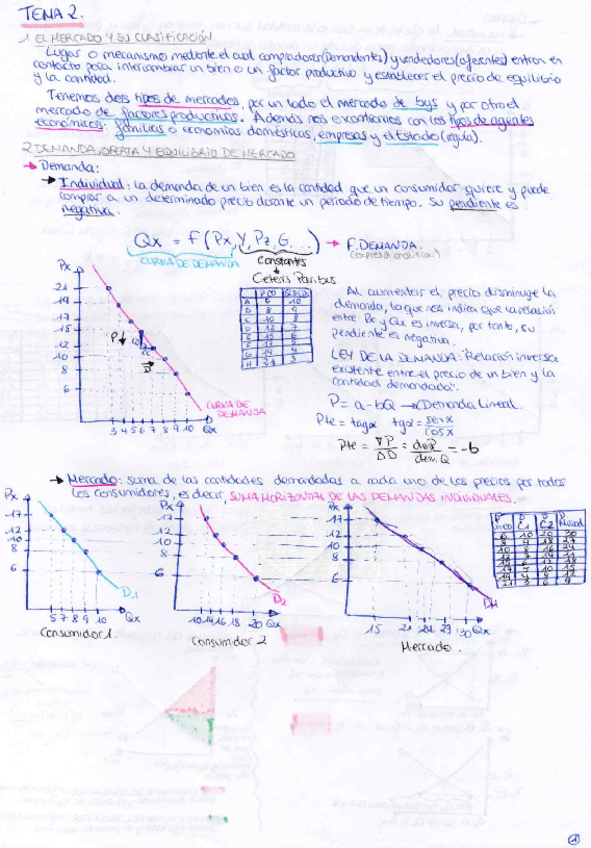 TEMA 2.
1. EL MERCADO Y SU CLASIFICACIÓN
Lugar o mecanismo mediante el cual compradores (Demandantes) y vendedores (oferentes) entran en
contacto para intercambiar un bien o un factor productivo y establecer el precio de equilibrio
y la cantidad.
Tenemos dos tipos de mercados, por un lado el mercado de bys y por otro el
mercado de factores productivos. Además nos encontramos con los tipos de agentes
económicos: familias o economías domésticas, empresas y el Estado (regula).
2. DEMANDA, OFERTA Y EQUILIBRIO DE MERCADO
→ Demanda:
→ Individual: la demanda de un bien es la cantidad que un consumidor quiere y puede
comprar a un determinado precio durante un periodo de tiempo. Su pendiente es
negativa.
Qx = f (Px, Y, Pz, G...) → F. DEMANDA.
CURVA DE DEMANDA
Constantes
Ceteris Paribus
Px
21
19
17
15
12
10
8
6
P
CURVA DE
DEMANDA
3 4 5 6 7 8 9 10 Qx
Al aumentar el precio disminuye la
demanda, lo que nos indica que la relación
entre Px y Qx es inversa, por tanto, su
pendiente es negativa.
LEY DE LA DEMANDA: "Relación inversa
existente entre el precio de un bien y la
cantidad demandada".
P = a - bQ → Demanda Lineal.
→ Mercado: suma de las cantidades demandadas a cada uno de los precios por todos
los consumidores, es decir, SUMA HORIZONTAL DE LAS DEMANDAS INDIVIDUALES.
Px
17
12
10
8
6
D1
5 7 8 9 10 Qx
Consumidor 1.
Px
17
12
10
8
6
D2
10 14 16 18 20 Qx
Consumidor 2
Px
17
12
10
8
6
15 21 24 Qx
Mercado.
1